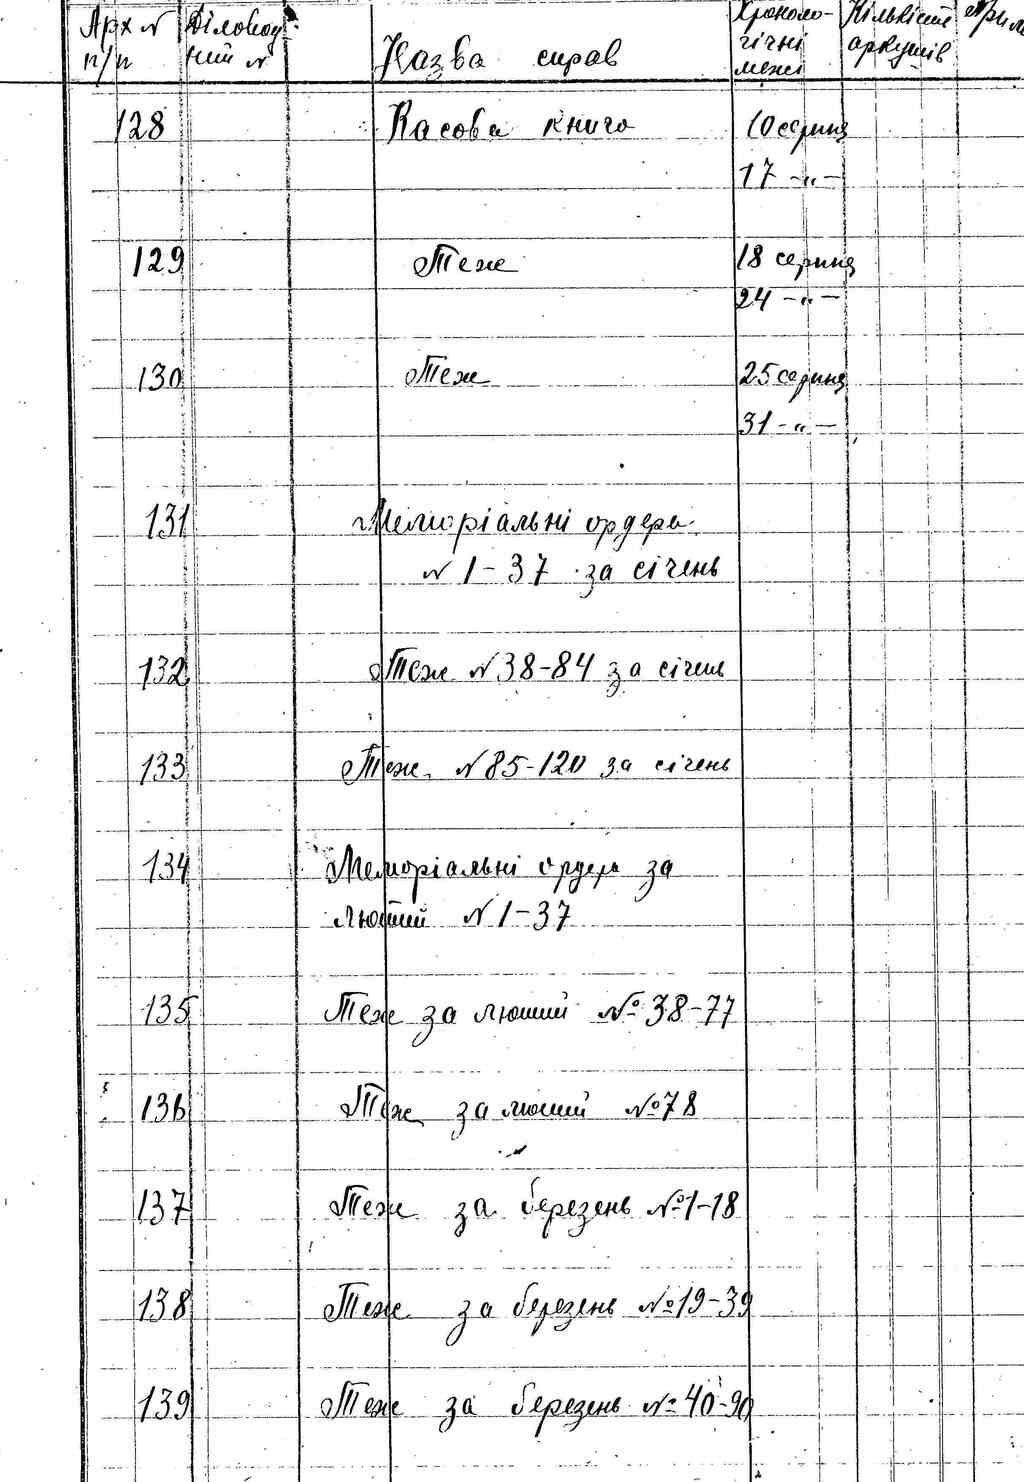 Арх № Діловод- Назва справ Хроноло- Кількість Прим
п/п ний № гічні аркушів
межі
128 Касова книга 10 серпня
17 -"-
129 Теж 18 серпня
24 -"-
130 Теж 25 серпня
31 -"-
131 Меморіальні ордера
№ 1-37 за січень
132 Теж № 38-84 за січень
133 Теж № 85-120 за січень
134 Меморіальні ордера за
лютий № 1-37
135 Теж за лютий № 38-77
136 Теж за лютий № 78
137 Теж за березень № 1-18
138 Теж за березень № 19-39
139 Теж за березень № 40-90